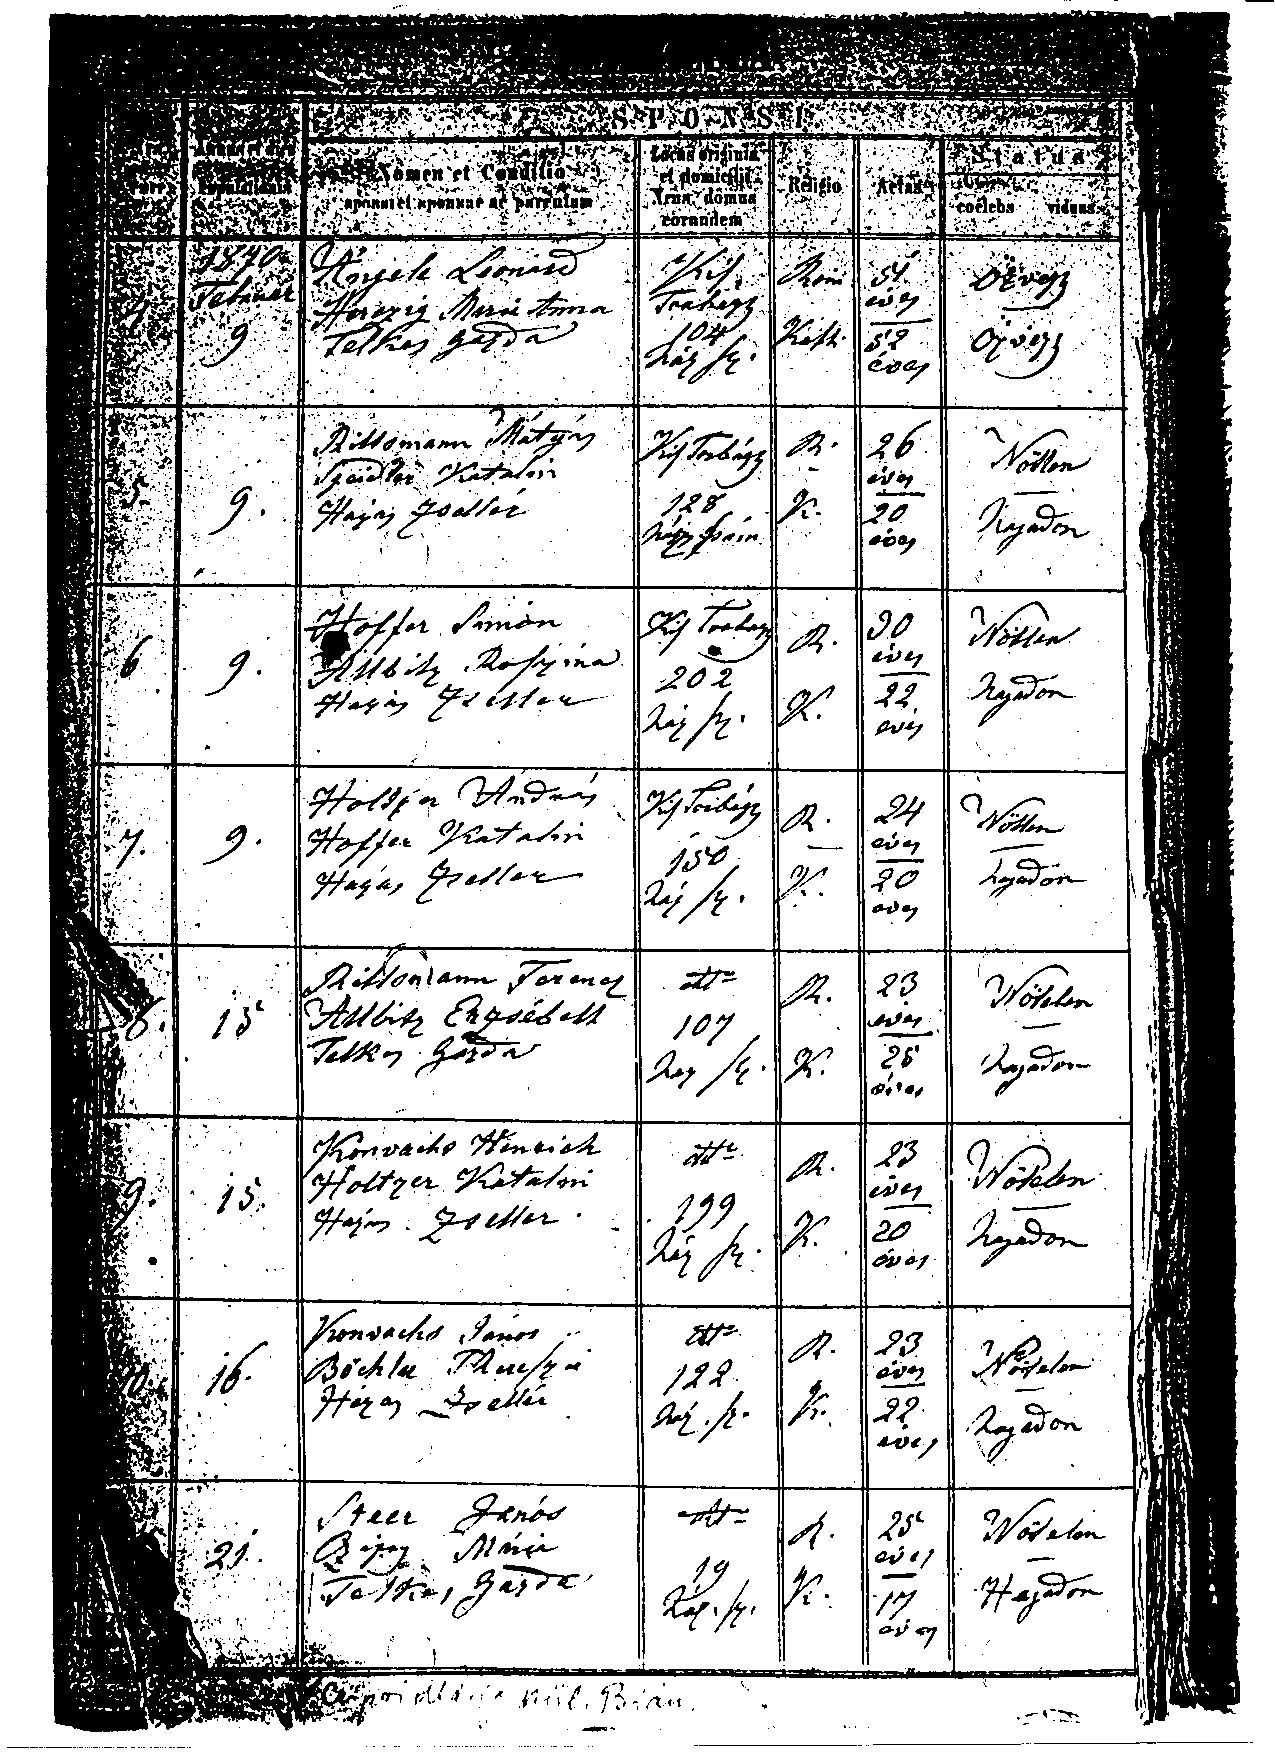 SPONSI
Nomen et Conditio
Locus originis
et domicilii
domus
eorundem
Religio
Aetas
Status
coelebs viduus
4 1870 Februar 9
Angele Leonard
Herczig Maria Anna
Telkes Gazda
Kis
Torbágy
104
Ház sz.
Rom
Kath.
51
éves
52
éves
özvegy
özvegy
5. 9.
Rittsmann Mátyás
Katalin
Hazas Zsellér
Kis Torbágy
128
Ház szám
R.
K.
26
éves
20
éves
Nőtlen
Hajadon
6 9.
Hoffer Simon
Albitz Roszina
Hazas Zseller
Kis Torbágy
202
Ház sz.
R.
K.
30
éves
22
éves
Nőtlen
Hajadon
7. 9.
Holtzer András
Hoffer Katalin
Hazas Zseller
Kis Torbágy
150
Ház sz.
R.
K.
24
éves
20
éves
Nőtlen
hajadon
8. 15
Rittsmann Ferencz
Albitz Erzsébett
Telkes Gazda
dtto
107
Ház sz.
R.
K.
23
éves
25
éves
Nőtelen
Hajadon
9. 15.
Konvachs Hinrich
Holtzer Katalin
Hazas Zseller
dtto
199
Ház sz.
R.
K.
23
éves
20
éves
Nőtelen
Hajadon
10. 16.
Konvachs János
Böchler Thereszia
Hazas Zsellér
dtto
122
Ház sz.
R.
K.
23
éves
22
éves
Nőtelen
Hajadon
21.
Steer János
Mária
Telkes Gazda
dtto
19
Ház. sz.
R.
K.
25
éves
17
éves
Nőtelen
Hajadon
Bián.